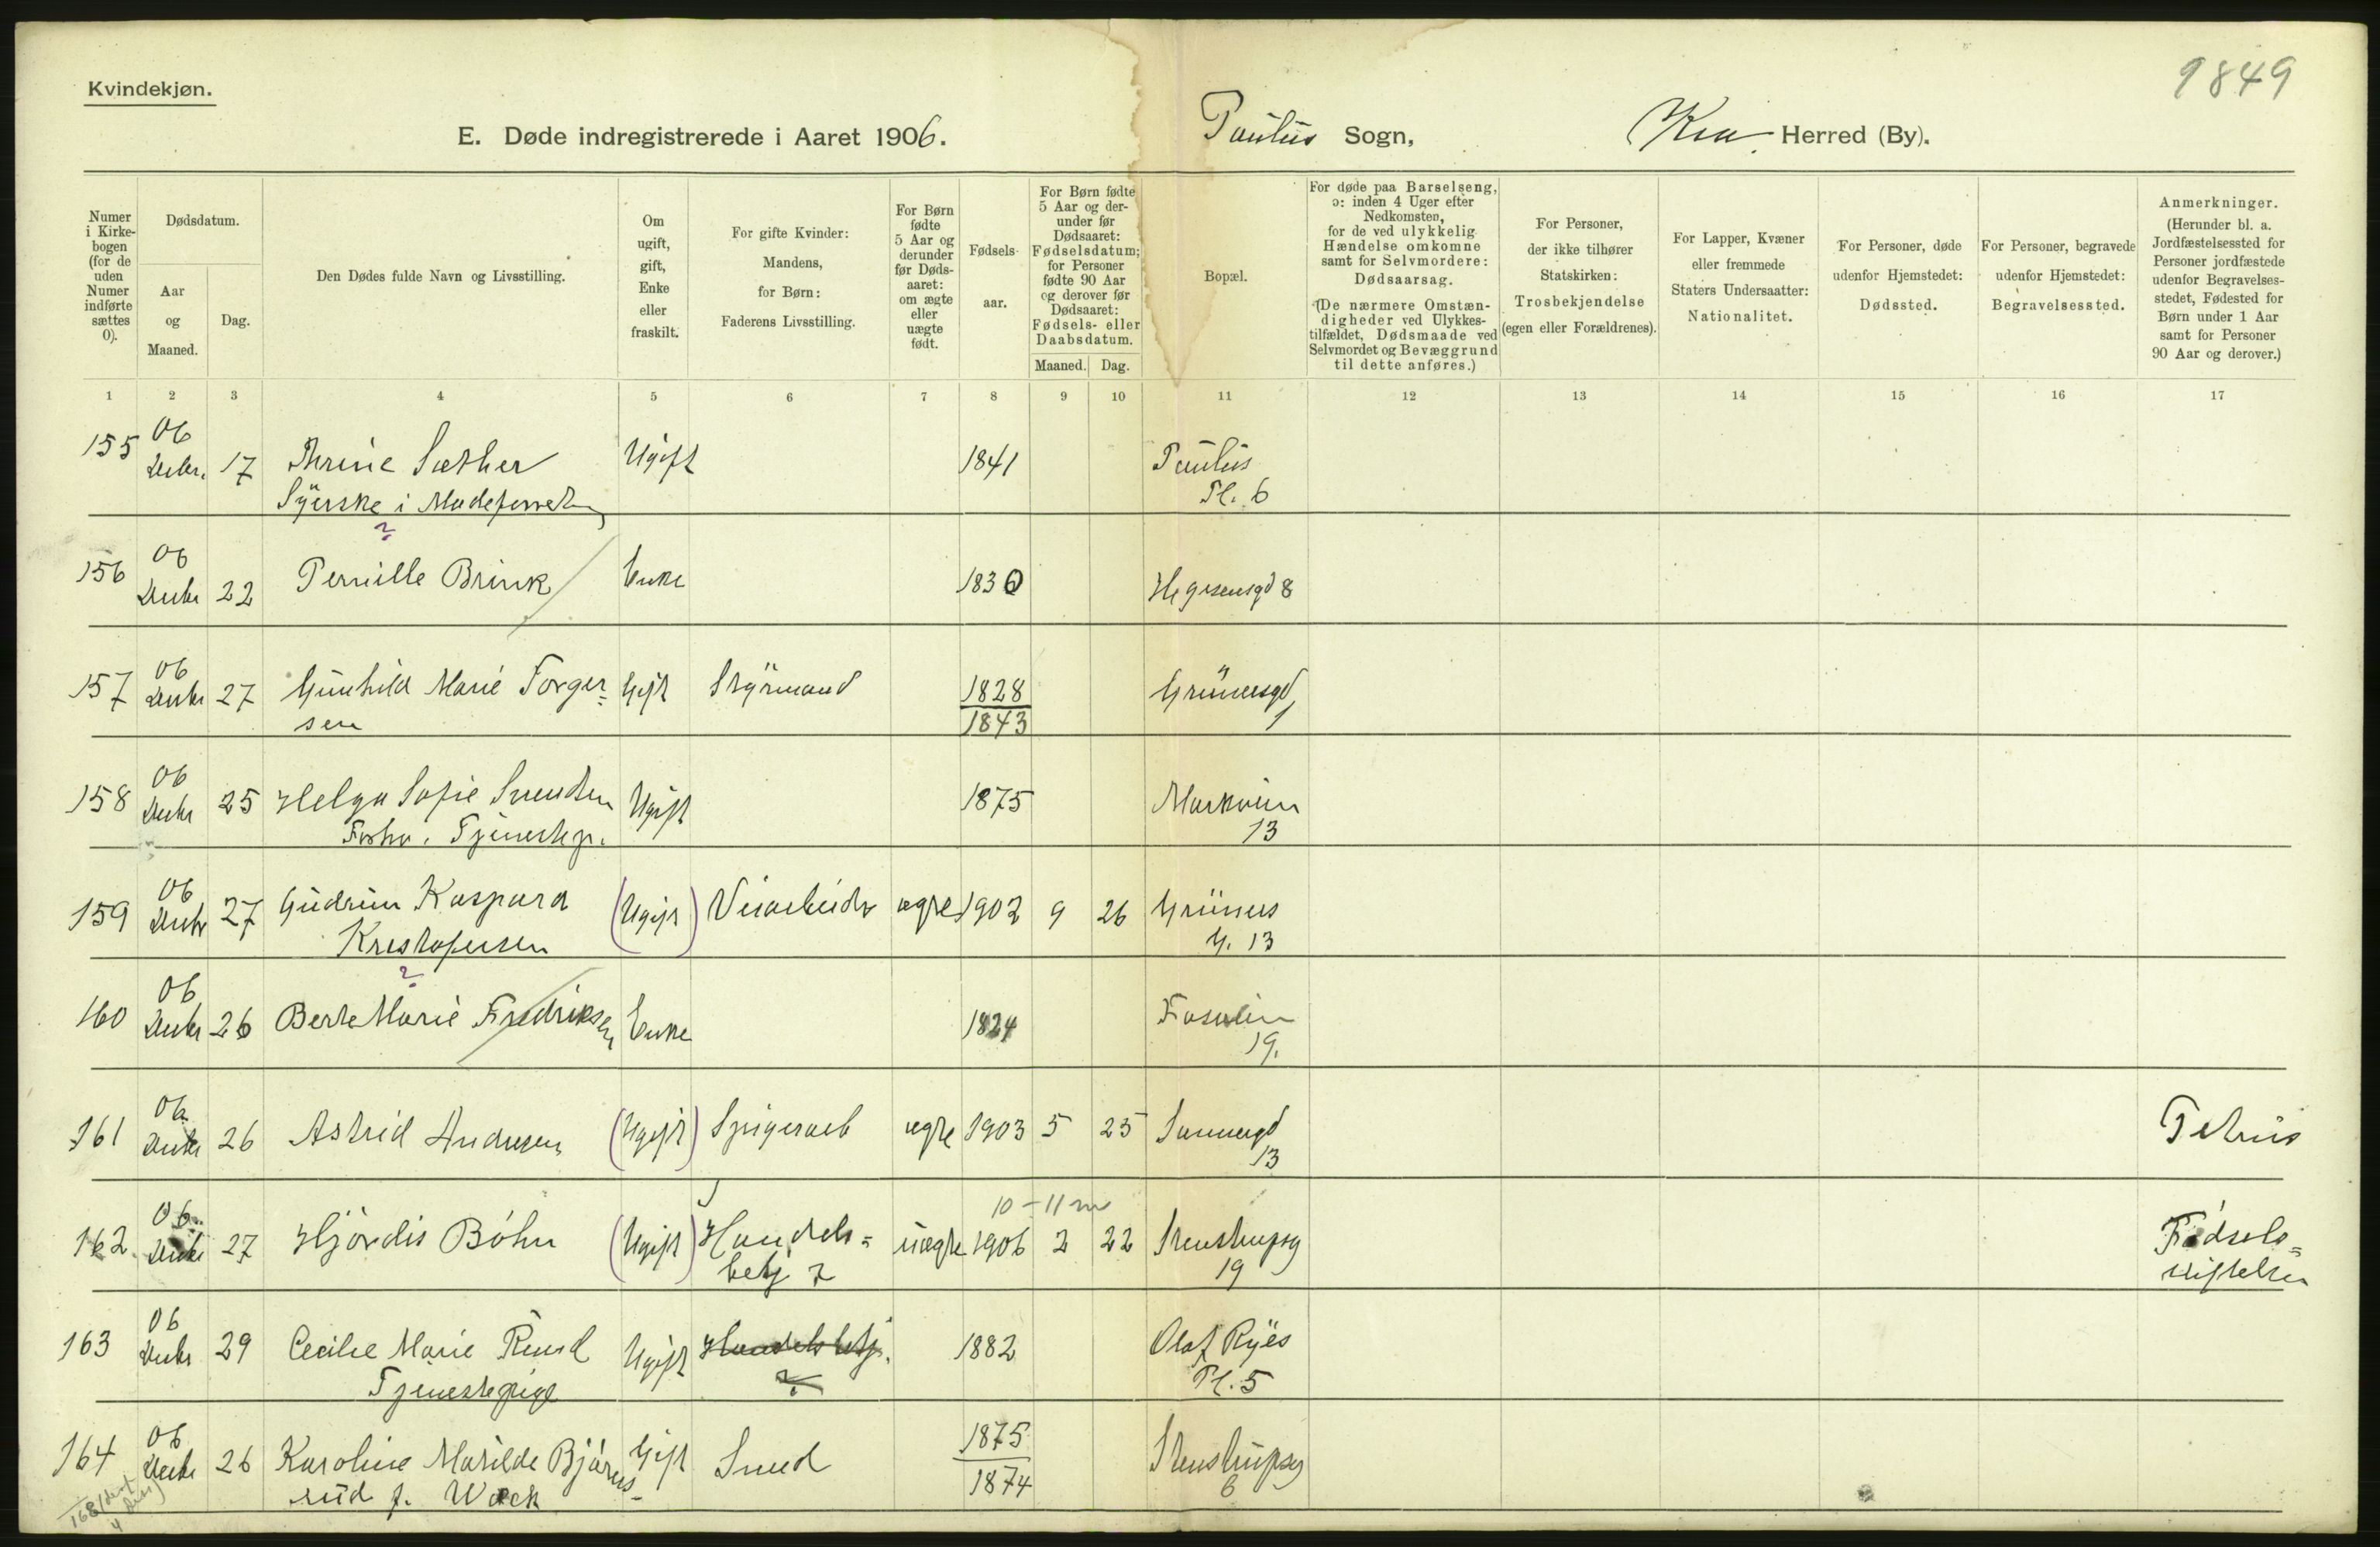 Kvindekjøn.
9849
E. Døde indregistrerede i Aaret 1906.
Paulus Sogn,
Kra. Herred (By).
Numer i Kirke- bogen (for de uden Numer indførte sættes 0).
Dødsdatum.
Aar og Maaned.
Dag.
Den Dødes fulde Navn og Livsstilling.
Om ugift, gift, Enke eller fraskilt.
For gifte Kvinder: Mandens, for Børn: Faderens Livsstilling.
For Børn fødte 5 Aar og derunder før Døds- aaret: om ægte eller uægte født.
Fødsels- aar.
For Børn fødte 5 Aar og der- under før Dødsaaret: Fødselsdatum; for Personer fødte 90 Aar og derover før Dødsaaret: Fødsels- eller Daabsdatum.
Maaned.
Dag.
Bopæl.
For døde paa Barselseng, ɔ: inden 4 Uger efter Nedkomsten, for de ved ulykkelig Hændelse omkomne samt for Selvmordere: Dødsaarsag.
(De nærmere Omstæn- digheder ved Ulykkes- tilfældet, Dødsmaade ved Selvmordet og Bevæggrund til dette anføres.)
For Personer, der ikke tilhører Statskirken: Trosbekjendelse (egen eller Forældrenes).
For Lapper, Kvæner eller fremmede Staters Undersaatter: Nationalitet.
For Personer, døde udenfor Hjemstedet: Dødssted.
For Personer, begravede udenfor Hjemstedet: Begravelsessted.
Anmerkninger.
(Herunder bl. a. Jordfæstelsessted for Personer jordfæstede udenfor Begravelses- stedet, Fødested for Børn under 1 Aar samt for Personer 90 Aar og derover.)
1 2 3 4 5 6 7 8 9 10 11 12 13 14 15 16 17
155 06 Decbr. 17 Thrine Sæther Ugift 1841 Paulus
Syerske i Modeforretn Pl. 6
?
156 06 Decbr 22 Pernille Brink Enke 1830 Helgesensgd 8
157 06 Decbr 27 Gunhild Marie Torger= Gift Styrmand 1828 Grünersgd
sen 1843 1
158 06 Decbr 25 Helga Sofie Svendsen Ugift 1875 Markvein
Forhv. Tjenestep. 13
159 06 Decbr 27 Gudrun Kaspara (Ugift) Veiarbeider ægte 1902 9 26 Grüners
Kristofersen G. 13
?
160 06 Decbr 26 Berte Marie Fredriksen Enke 1824 Fosvein
19.
161 06 Decbr 26 Astrid Andresen (Ugift) Spigerarb ægte 1903 5 25 Sannergd Petrus
13
10-11 m
162 06 Decbr 27 Hjördis Böhn (Ugift) Handels= uægte 1906 2 22 Stenstrupsg Födsels=
betj 7 19 stiftelsen
163 06 Decbr 29 Cecilie Marie Ruud Ugift Handelsbetj. 1882 Olaf Ryes
Tjenestepige Pl. 5
164 06 Decbr 26 Karoline Matilde Bjärns- Gift Smed 1875 Stenstrupsg
rud f. Wack 1874 6